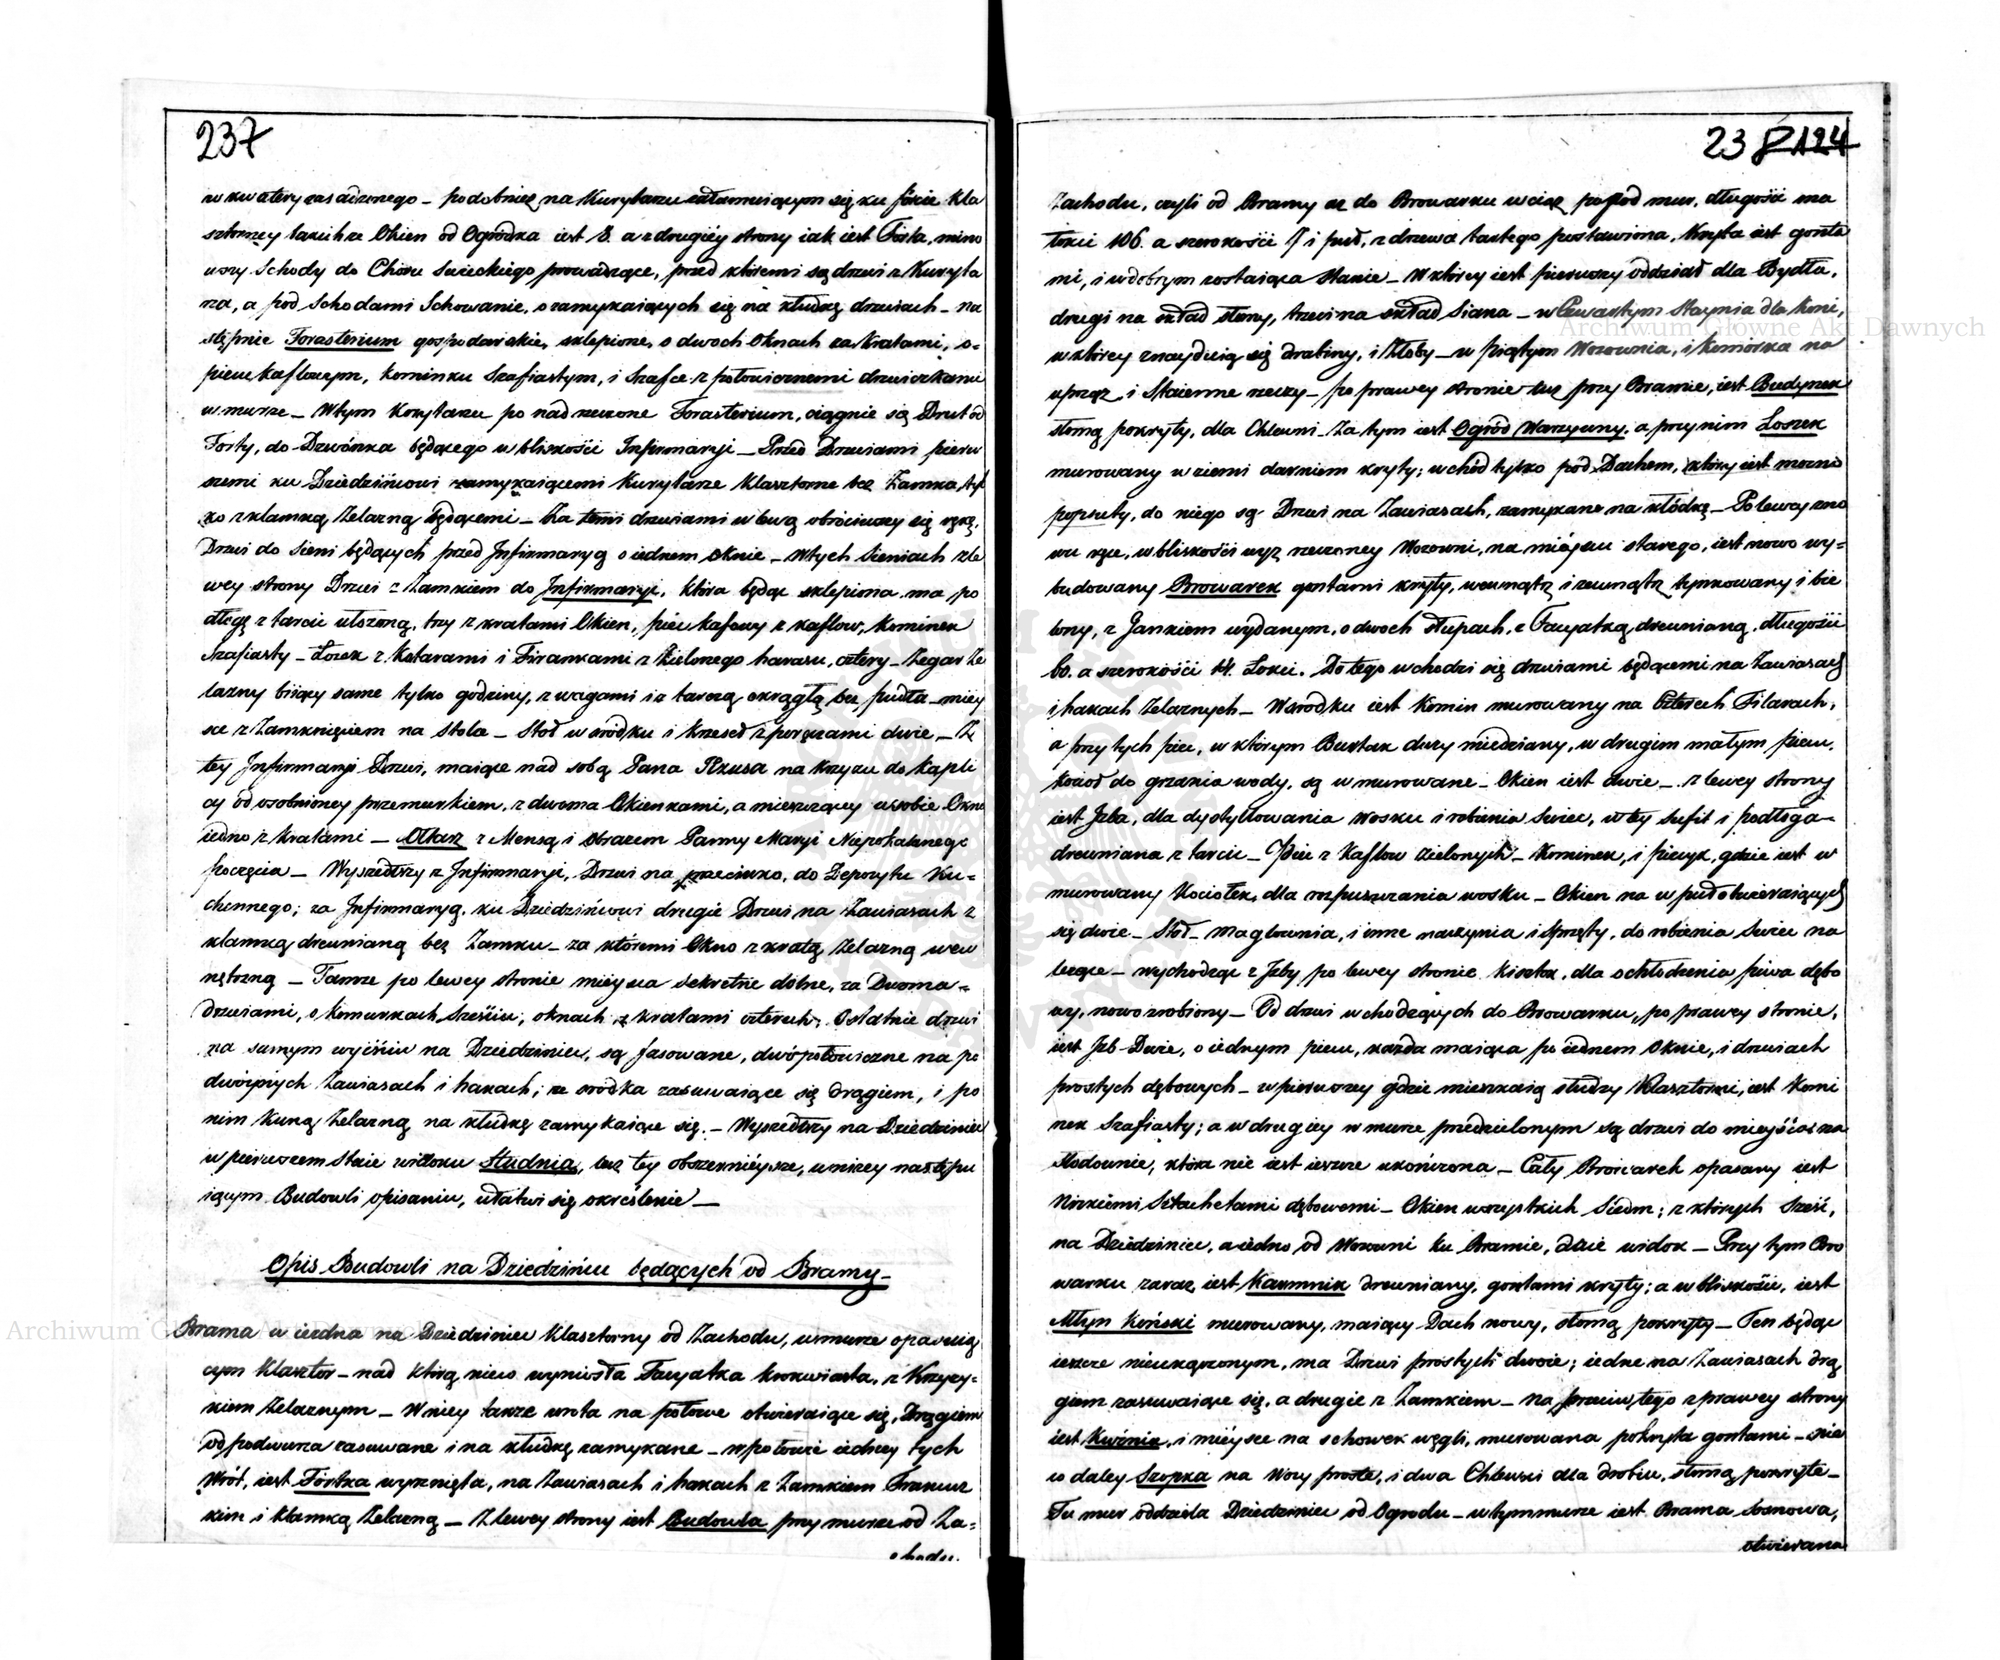 237
w kwatery zasadzonego _ podobnież na Kurytarzu załamuiącym się ku forcie Kla
sztorney takichże Okien od Ogrodka iest 8. a z drugiéy strony iak iest Forta, mino
wszy Schody do Choru Swieckiego prowadzące, przed któremi są drzwi z Kuryta
rza, a pod Schodami Schowanie, o zamykaiących się na kłudkę drzwiach _ na
stępnie Forasterium gospodarskie, sklepione, o dwoch Oknach za Kratami, o-
piecu kaflowym, kominku Szafiastym, i Szafce z połowicznemi drzwiczkami
w murze _ W tym Korytarzu po nad rzeczone Forasterium, ciągnie się Drut od
Forty, do Dzwónka będącego w bliskości Infirmaryi _ Przed Drzwiami pierw
szemi ku Dziedzińcowi zamykaiącemi Kurytarze Klasztorne bez Zamka, tyl
ko z klamką Żelazną będącemi _ Za temi drzwiami w lewą obróciwszy się rękę,
Drzwi do Sieni będących przed Infirmaryą o iednem Oknie _ W tych Sieniach z le
wey strony Drzwi z Zamkiem do Infirmaryi, która będąc sklepiona ma po
dłogę z tarcic ułożoną, trzy z kratami Okien, piec kaflowy z kaflow, Kominek
Szafiasty _ Łożek z Kotarami i Firankami z Zielonego harasu, cztery _ Zegar Że
lazny biiący same tylko godziny, z wagami i z tarczą okrągłą bez pudła _ miey
sce z Zamknięciem na Stola _ Stoł w srodku i Krzeseł z poręczami dwie _ Z
tey Infirmaryi Drzwi, maiące nad sobą Pana Jezusa na krzyżu do Kapli
cy od osobnioney przemurkiem, z dwoma Okienkami, a mieszczącey w sobie Okno
iedno z Kratami _ Ołtarz z Mensą i obrazem Panny Maryi Niepokalanego
Poczęcia _ Wyszedłszy z Infirmaryi, Drzwi na przeciwko, do Depozytu Ku-
chennego; za Infirmaryą ku Dziedzińcowi drugie Drzwi na Zawiasach z
klamką drewnianą bez Zamku _ za któremi Okno z kratą Żelazną wew
nętrzną _ Tamże po lewey stronie mieysca Sekretne dolne, za Dwoma-
drzwiami, o Komurkach Sześciu, oknach z kratami czterech; Ostatnie drzwi
na samym wyjściu na Dziedziniec, są fasowane, dwópołowiczne na po
dwóynych Zawiasach i hakach; ze srodka zasuwaiące się drągiem, i po
nim Kuną Żelazną na kłudkę zamykaiące się. _ Wyszedłszy na Dziedziniec
w pierwszem Staie widoku Studnia, lecz tey obszernieysze, w niżey nastąpu
iącym Budowli opisaniu, ułatwi się okréslenie _
Opis Budowli na Dziedzińcu będących od Bramy _
Brama w iezdna na Dziedziniec Klasztorny od Zachodu, w murze opasuią
cym Klasztor _ nad którą nieco wyniosła Facyatka krokwiasta, z Krzyży-
kiem Żelaznym _ W niey także wrota na połowe otwieraiące się, Drągiem
od podwurza zasuwane i na kłudkę zamykane _ w połowie iedney tych
Wrót, iest Fórtka wyrznięta, na Zawiasach i hakach z Zamkiem Francuz
kim i klamką Żelazną _ Z lewey strony iest Budowla przy murze od Za-
chodu.
238 124
Zachodu, czyli od Bramy aż do Browarku wciąż popod mur, długości ma
łokci 106. a szerokości 17 i pół, z drzewa tartego postawiona, Kryta iest gonta
mi, i w dobrym zostaiąca Stanie _ W którey iest pierwszy oddział dla Bydła,
drugi na skład słomy, trzeci na skład Siana _ w Czwartym Staynia dla Koni,
w którey znayduią się drabiny, i Żłoby _ w piątym Wozownia, i Komórka na
uprząż i Staienne rzeczy _ po prawey stronie tuż przy Bramie, iest Budynek
słomą pokryty, dla Chlewni _ Za tym iest Ogród Warzywny, a przy nim Loszek
murowany w ziemi darniem kryty; wchód tylko pod Dachem, który iest mocno
popsuty, do niego są Drzwi na Zawiasach, zamykane na kłódkę _ Po lewey zno
wu ręce, w bliskości wyż rzeczoney Wozowni, na mieyscu starego, iest nowo wy-
budowany Browarek gontami kryty, wewnątrz i zewnątrz tynkowany i bie
lony, z Gankiem wydanym, o dwoch słupach, z Facyatką drewnianą, długości
60. a szerokości 14. Łokci. Do tego wchodzi się drzwiami będącemi na Zawiasach
i hakach Żelaznych _ W środku iest Komin murowany na Czterech Filarach,
a przy tych piec, w którym Burtak duży miedziany, w drugim małym piecu,
kocioł do grzania wody, są w murowane _ Okien iest dwie _ z lewey strony
iest Izba, dla dystyllowania Wosku i robienia Swiec, w tey Sufit i podłoga-
drewniana z tarcic _ Piec z Kaflow Zielonych _ Kominek, i piecyk, gdzie iest w
murowany Kociołek, dla rozpuszczania wosku _ Okien na w puł otwieraiących
się dwie _ Stoł _ maglownia, i inne naczynia i Sprzęty, do robienia Swiec na
leżące _ wychodząc z Izby po lewey stronie Kisztok, dla ochłodzenia piwa dębo
wy, nowo zrobiony _ Od drzwi wchodzących do Browarku, po prawey stronie,
iest Izb Dwie, o iednym piecu, każda maiąca po iednem Oknie, i drzwiach
prostych dębowych _ w pierwszey gdzie mieszkaią słudzy Klasztorni, iest Komi
nek Szafiasty; a w drugiey w murze przedzielonym są drzwi do mieyśca na
Słodownie, która nie iest ieszcze ukończona _ Cały Browarek opasany iest
Nizkiemi Sztachetami dębowemi _ Okien wszystkich Siedm; z których Sześć,
na Dziedziniec, a iedno od Wozowni ku Bramie, daie widok _ Przy tym Bro
warku zaraz iest Karmnik drewniany, gontami kryty; a w bliskości, iest
Młyn Koński murowany, maiący Dach nowy, słomą pokryty _ Ten będąc
ieszcze nieukączonym, ma Drzwi prostych dwoie; iedne na Zawiasach drą
giem zasuwaiące się, a drugie z Zamkiem _ na przeciw tego z prawey strony
iest Kuźnia, i mieysce na schowek węgli, murowana pokryta gontami _ nie
co daley Szopka na Wozy proste, i dwa Chlewki dla drobiu, słomą pokryte _
Tu mur oddziela Dziedziniec od Ogrodu _ w tym murze iest Brama Sosnowa,
otwierana
Archiwum Główne Akt Dawnych
Archiwum Główne Akt Dawnych